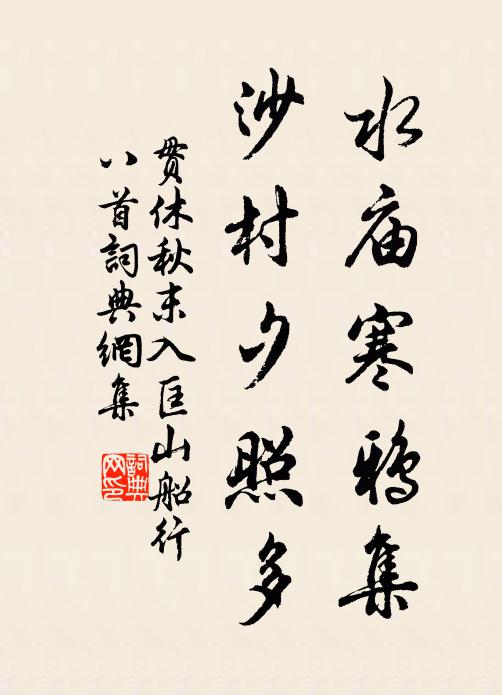 水庙寒鸦集
沙村夕照多
贯休秋末入匡山船行
八首詞典網集
詞典
网印